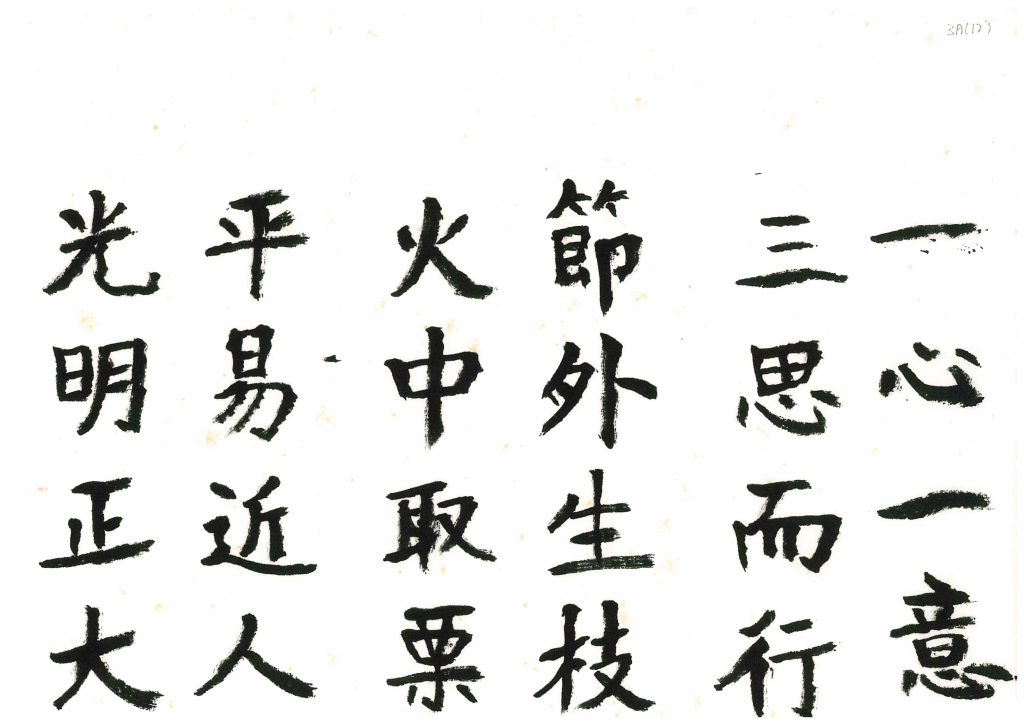 3A(12)
一心一意
三思而行
節外生枝
火中取栗
平易近人
光明正大